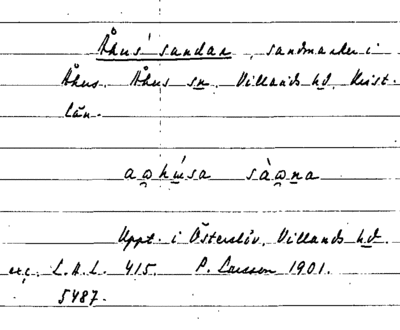 Åhus' sandar, sandmarker i
Åhus. Åhus sn. Villands hd, Krist.
län.
aa̯húsa sàa̯na
Uppt. i Österslöv, Villands hd.
exc. L.A.L. 415. P. Larsson 1901.
5487.